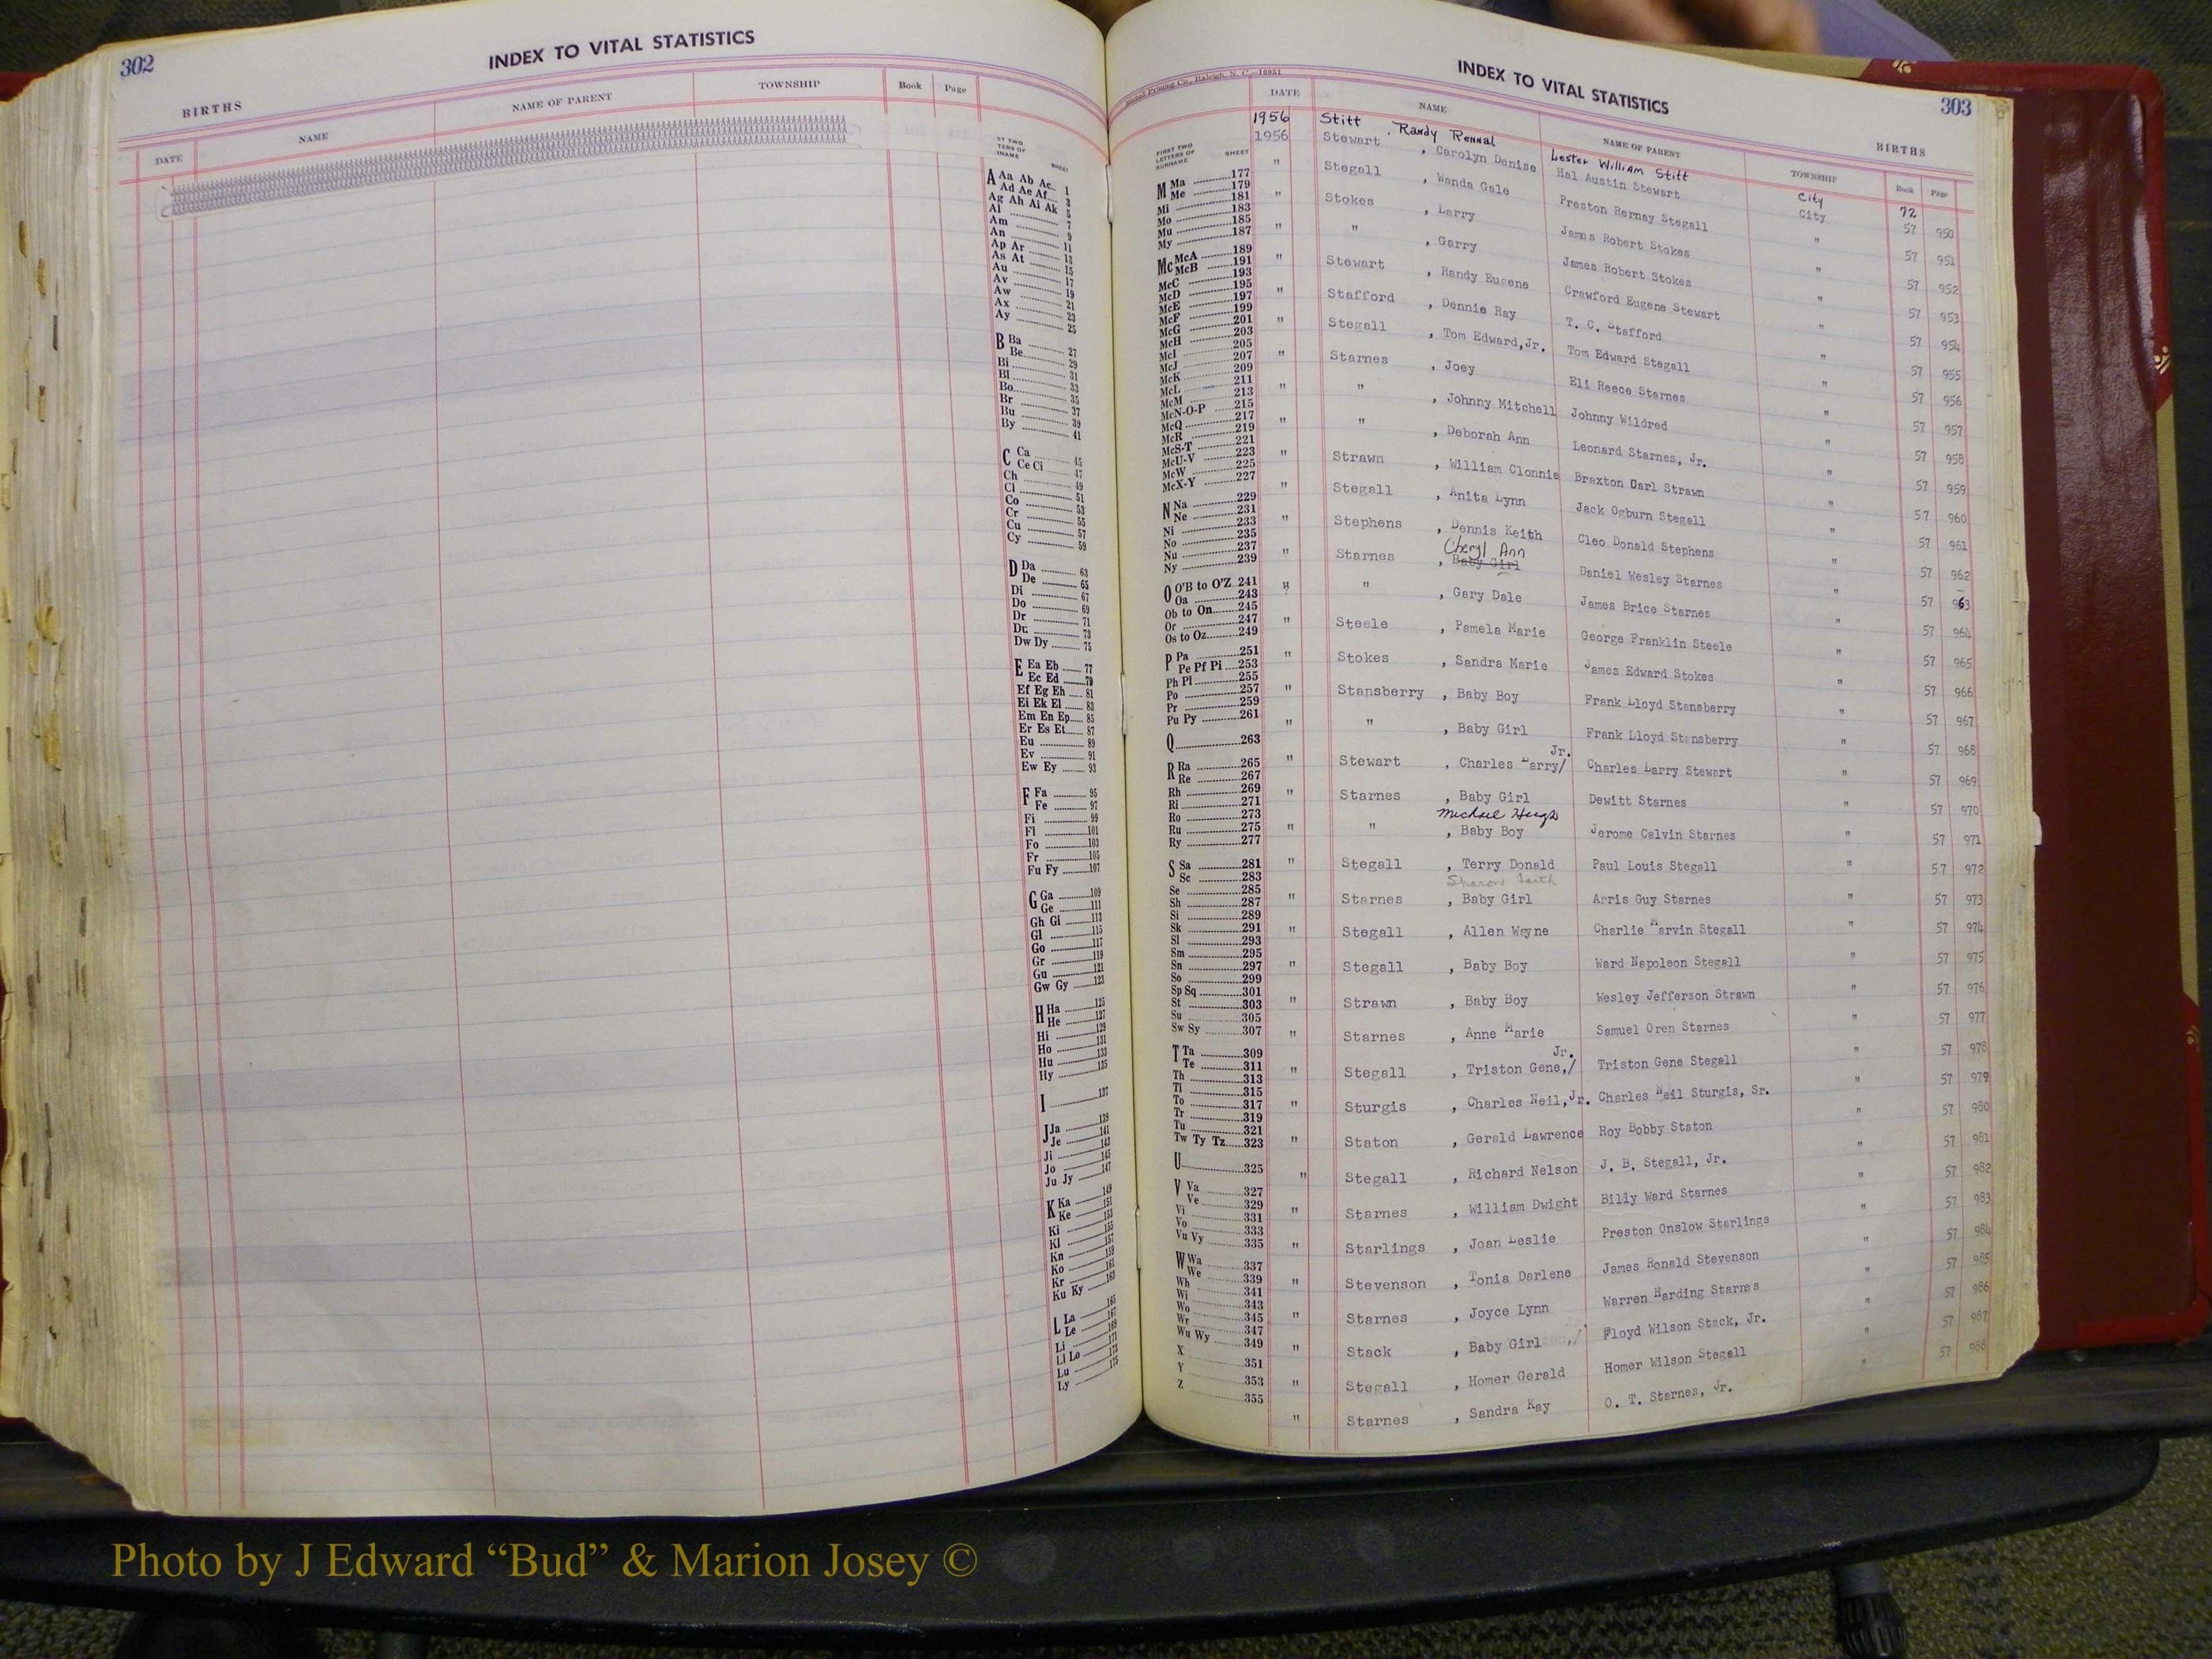 302
INDEX TO VITAL STATISTICS
BIRTHS
DATE NAME NAME OF PARENT TOWNSHIP Book Page
SHEET
A Aa Ab Ac 1
Ad Ae Af 3
Ag Ah Ai Ak 5
Al 7
Am 9
An 11
Ap Ar 13
As At 15
Au 17
Av 19
Aw 21
Ax 23
Ay 25
B Ba 27
Be 29
Bi 31
Bl 33
Bo 35
Br 37
Bu 39
By 41
C Ca 45
Ce Ci 47
Ch 49
Cl 51
Co 53
Cr 55
Cu 57
Cy 59
D Da 63
De 65
Di 67
Do 69
Dr 71
Du 73
Dw Dy 75
E Ea Eb 77
Ec Ed 79
Ef Eg Eh 81
Ei Ek El 83
Em En Ep 85
Er Es Et 87
Eu 89
Ev 91
Ew Ey 93
F Fa 95
Fe 97
Fi 99
Fl 101
Fo 103
Fr 105
Fu Fy 107
G Ga 109
Ge 111
Gh Gi 113
Gl 115
Go 117
Gr 119
Gu 121
Gw Gy 123
H Ha 125
He 127
Hi 129
Ho 131
Hu 133
Hy 135
I 137
J Ja 139
Je 141
Ji 143
Jo 145
Ju Jy 147
K Ka 149
Ke 151
Ki 153
Kl 155
Kn 157
Ko 159
Kr 161
Ku Ky 163
L La 165
Le 167
Li 169
Ll Lo 171
Lu 173
Ly 175
303
INDEX TO VITAL STATISTICS
BIRTHS
Printing Co., Raleigh, N. C.—10951
FIRST TWO LETTERS OF SURNAME SHEET
M Ma 177
Me 179
Mi 181
Mo 183
Mu 185
My 187
Mc McA 189
McB 191
McC 193
McD 195
McE 197
McF 199
McG 201
McH 203
McI 205
McJ 207
McK 209
McL 211
McM 213
McN-O-P 215
McQ 217
McR 219
McS-T 221
McU-V 223
McW 225
McX-Y 227
N Na 229
Ne 231
Ni 233
No 235
Nu 237
Ny 239
O O'B to O'Z 241
Oa 243
Ob to On 245
Or 247
Os to Oz 249
P Pa 251
Pe Pf Pi 253
Ph Pl 255
Po 257
Pr 259
Pu Py 261
Q 263
R Ra 265
Re 267
Rh 269
Ri 271
Ro 273
Ru 275
Ry 277
S Sa 281
Sc 283
Se 285
Sh 287
Si 289
Sk 291
Sl 293
Sm 295
Sn 297
So 299
Sp Sq 301
St 303
Su 305
Sw Sy 307
T Ta 309
Te 311
Th 313
Ti 315
To 317
Tr 319
Tu 321
Tw Ty Tz 323
U 325
V Va 327
Ve 329
Vi 331
Vo 333
Vu Vy 335
W Wa 337
We 339
Wh 341
Wi 343
Wo 345
Wr 347
Wu Wy 349
X 351
Y 353
Z 355
DATE NAME NAME OF PARENT TOWNSHIP Book Page
1956 Stitt , Randy Rennal Lester William Stitt City 72
1956 Stewart , Carolyn Denise Hal Austin Stewart City 57 950
" Stegall , Wanda Gale Preston Rernay Stegall " 57 951
" Stokes , Larry James Robert Stokes " 57 952
" " , Garry James Robert Stokes " 57 953
" Stewart , Randy Eugene Crawford Eugene Stewart " 57 954
" Stafford , Dennie Ray T. C. Stafford " 57 955
" Stegall , Tom Edward,Jr. Tom Edward Stegall " 57 956
" Starnes , Joey Eli Reece Starnes " 57 957
" " , Johnny Mitchell Johnny Wildred " 57 958
" " , Deborah Ann Leonard Starnes, Jr. " 57 959
" Strawn , William Clonnie Braxton Carl Strawn " 57 960
" Stegall , Anita Lynn Jack Ogburn Stegall " 57 961
" Stephens , Dennis Keith Cleo Donald Stephens " 57 962
Cheryl Ann
" Starnes , Baby Girl Daniel Wesley Starnes " 57 963
" " , Gary Dale James Brice Starnes " 57 964
" Steele , Pamela Marie George Franklin Steele " 57 965
" Stokes , Sandra Marie James Edward Stokes " 57 966
" Stansberry , Baby Boy Frank Lloyd Stansberry " 57 967
" " , Baby Girl Frank Lloyd Stansberry " 57 968
Jr.
" Stewart , Charles Larry/ Charles Larry Stewart " 57 969
" Starnes , Baby Girl Dewitt Starnes " 57 970
Michael Hugh
" " , Baby Boy Jerome Calvin Starnes " 57 971
" Stegall , Terry Donald Paul Louis Stegall " 57 972
Sharon Faith
" Starnes , Baby Girl Arris Guy Starnes " 57 973
" Stegall , Allen Wayne Charlie Marvin Stegall " 57 974
" Stegall , Baby Boy Ward Napoleon Stegall " 57 975
" Strawn , Baby Boy Wesley Jefferson Strawn " 57 976
" Starnes , Anne Marie Samuel Oren Starnes " 57 977
Jr.
" Stegall , Triston Gene,/ Triston Gene Stegall " 57 978
" Sturgis , Charles Neil,Jr. Charles Neil Sturgis, Sr. " 57 979
" Staton , Gerald Lawrence Roy Bobby Staton " 57 980
" Stegall , Richard Nelson J. B. Stegall, Jr. " 57 981
" Starnes , William Dwight Billy Ward Starnes " 57 982
" Starlings , Joan Leslie Preston Onslow Starlings " 57 983
" Stevenson , Tonia Darlene James Ronald Stevenson " 57 984
" Starnes , Joyce Lynn Warren Harding Starnes " 57 985
" Stack , Baby Girl Floyd Wilson Stack, Jr. " 57 986
" Stegall , Homer Gerald Homer Wilson Stegall " 57 987
" Starnes , Sandra Kay O. T. Starnes, Jr. " 57 988
Photo by J Edward “Bud” & Marion Josey ©